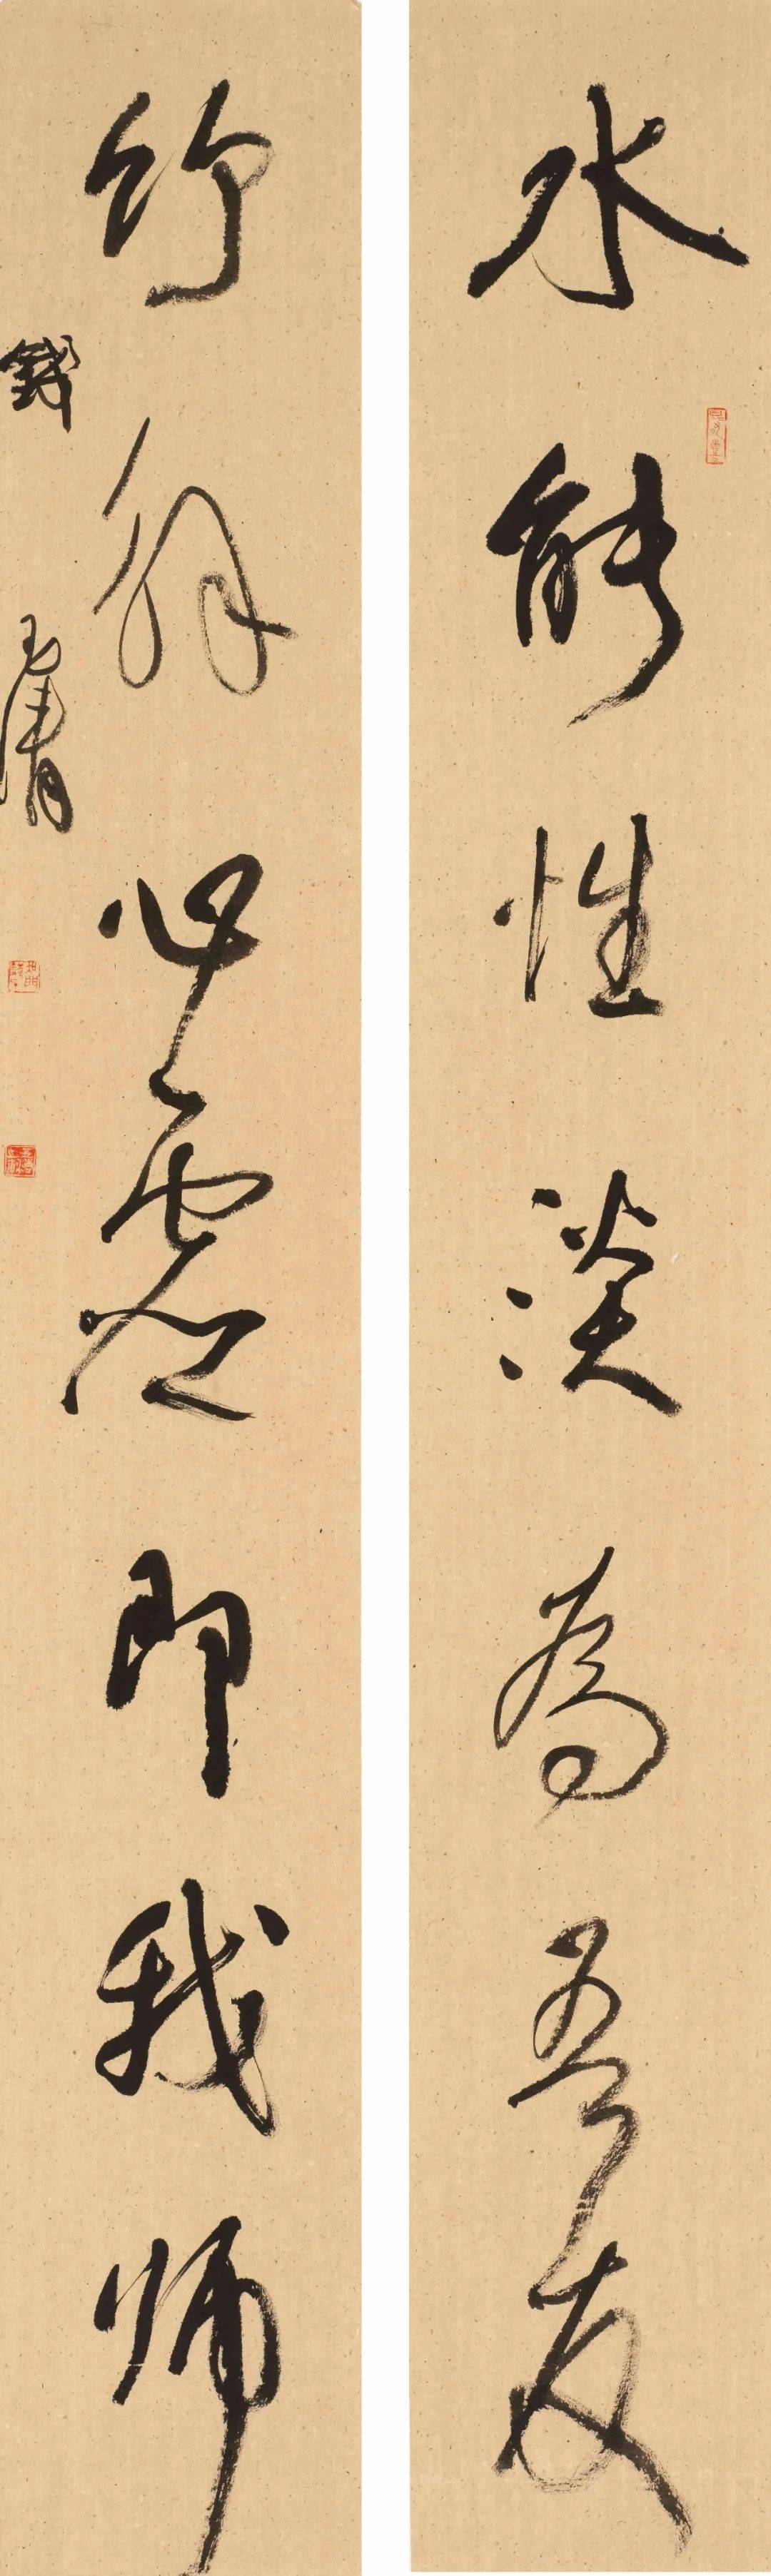 水能性淡為吾友
竹解心虛即我師
錢玉清